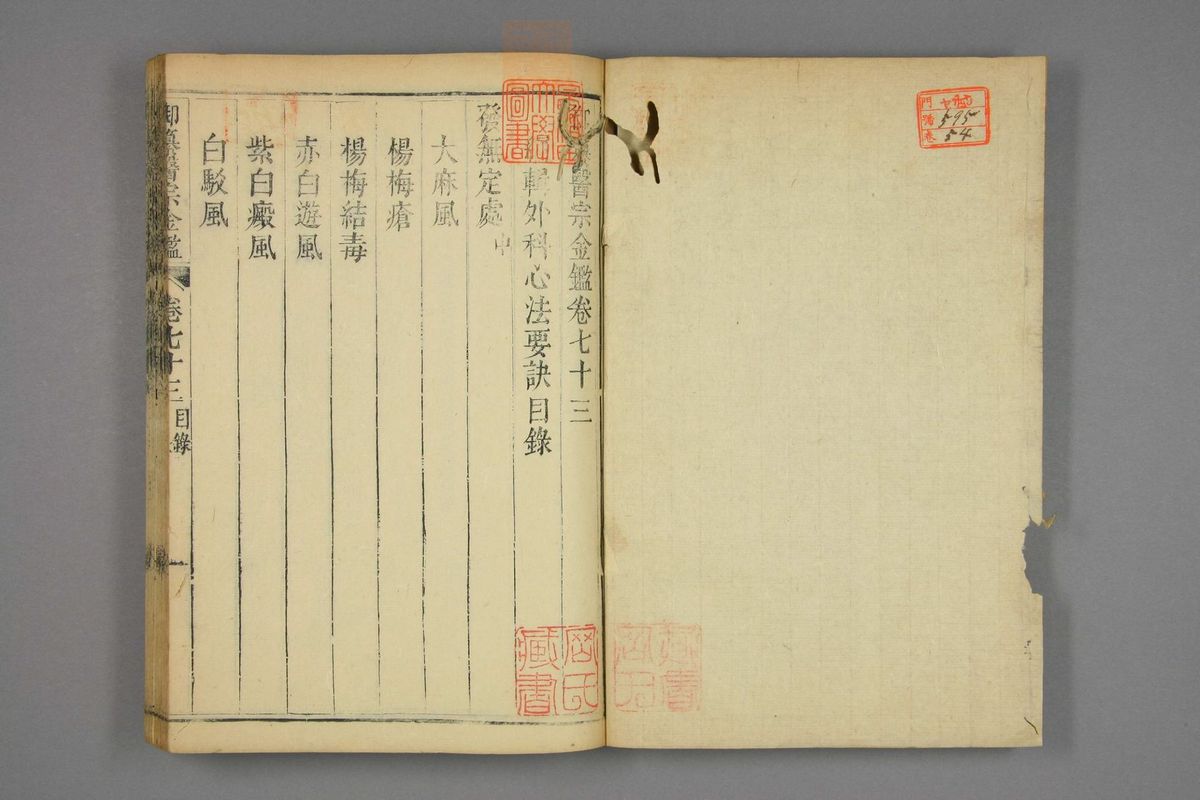 門 ヤ
號 595
卷 54
醫宗金鑑卷七十三
輯外科心法要訣目錄
發無定處 中
大麻風
楊梅瘡
楊梅結毒
赤白遊風
紫白癜風
白駁風
御纂醫宗金鑑 卷七十三 目錄 一
圖書
藏書